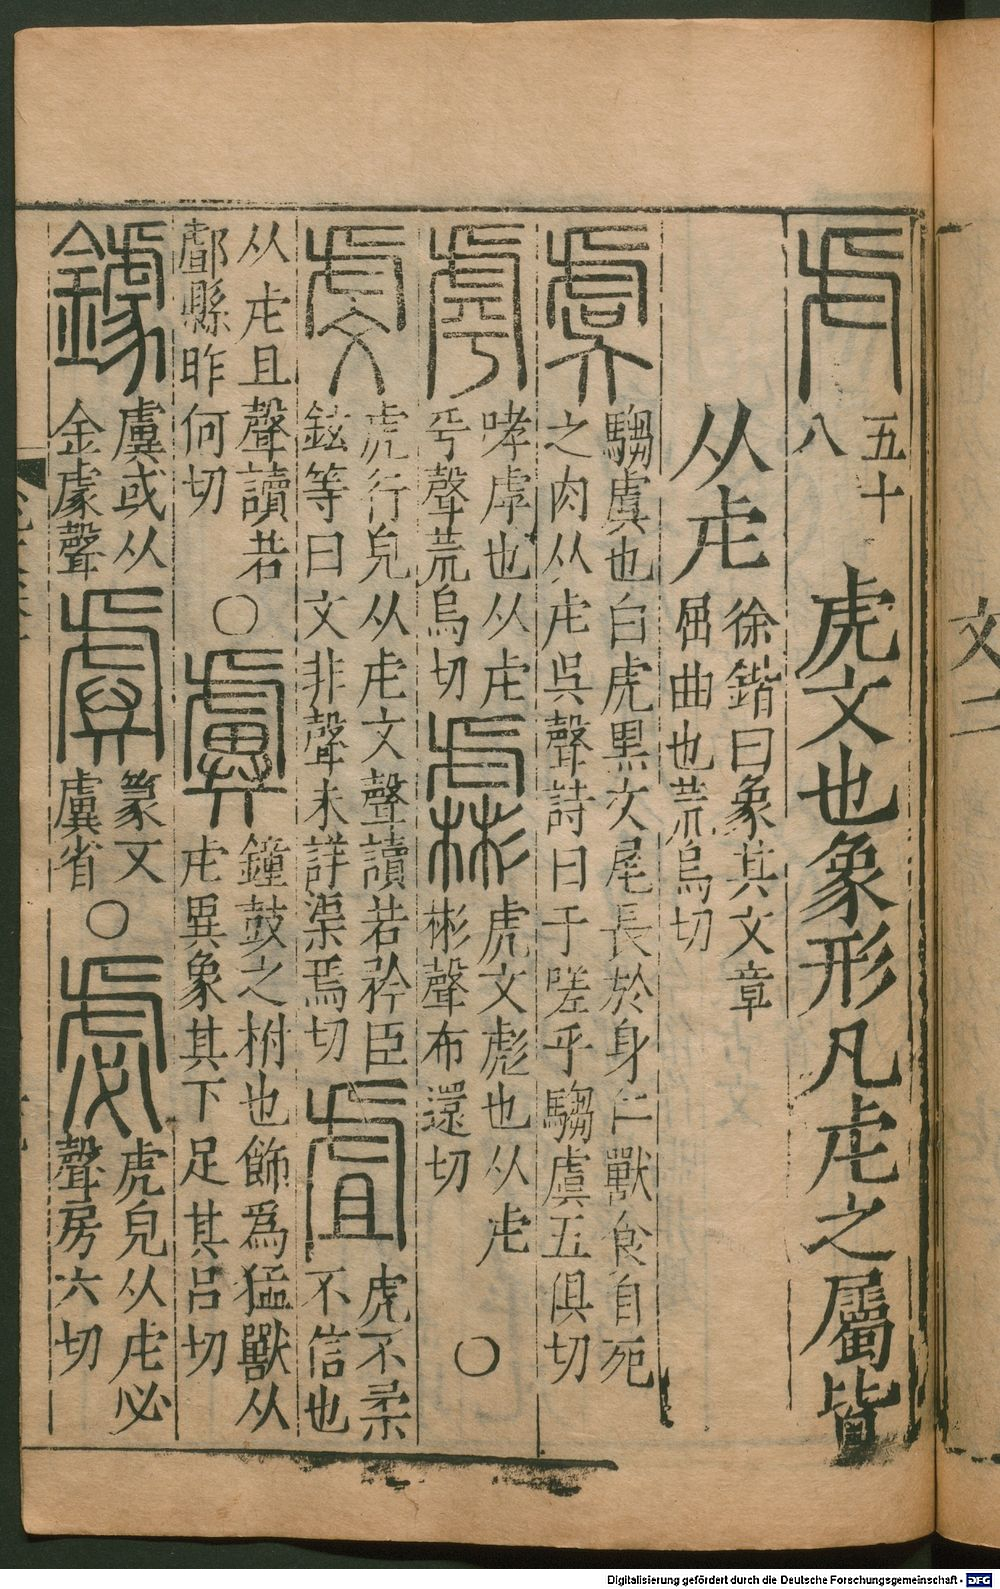 文二
虍 五十八 虎文也象形凡虍之屬皆
从虍 徐鍇曰象其文章屈曲也荒烏切
虞 騶虞也白虎黑文尾長於身仁獸食自死之肉从虍吳聲詩曰于嗟乎騶虞五俱切
虖 哮虖也从虍乎聲荒烏切 虨 虎文彪也从虍彬聲布還切 ○
虔 虎行皃从虍文聲讀若矜臣鉉等曰文非聲未詳渠焉切 虘 虎不柔不信也
从虍且聲讀若䣜縣昨何切 ○ 虡 鐘鼓之柎也飾爲猛獸从虍異象其下足其呂切
鐻 虡或从金豦聲 虡 篆文虡省 ○ 虙 虎皃从虍必聲房六切
Digitalisierung gefördert durch die Deutsche Forschungsgemeinschaft - DFG